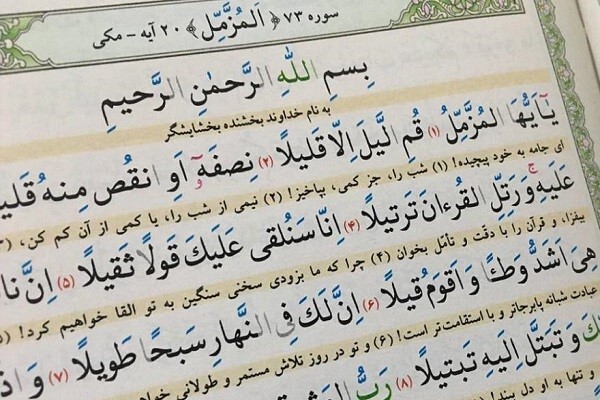 سوره ۷۳ ﴿المُزَّمِّل﴾ ۲۰ آیه - مکی
بِسمِ اللهِ الرَّحمٰنِ الرَّحیمِ
به نام خداوند بخشنده بخشایشگر
یٰۤاَیُّهَا المُزَّمِّلُ (۱) قُمِ الَّیلَ اِلّا قَلیلًا (۲) نِصفَهٗۤ اَوِ انقُص مِنهُ
ای جامه به خود پیچیده! (۱) شب را، جز کمی، بپاخیز! (۲) نیمی از شب را، یا کمی از آن کم کن،
عَلَیهِ وَ رَتِّلِ القُرءانَ تَرتیلًا (۴) اِنّا سَنُلقی عَلَیكَ قَولًا ثَقیلًا (۵) اِنَّ
بیفزا، و قرآن را با دقّت و تأمّل بخوان (۴) چرا که ما بزودی سخنی سنگین به تو القا خواهیم کرد!
هِیَ اَشَدُّ وَطـًٔا وَ اَقوَمُ قیلًا (۶) اِنَّ لَكَ فِی النَّهارِ سَبحًا طَویلًا (۷)
عبادت شبانه پابرجاتر و با استقامت‌تر است! (۶) و تو در روز تلاش مستمر و طولانی
وَ تَبَتَّل اِلَیهِ تَبتیلًا (۸) رَبُّ
و تنها به او دل ببند!